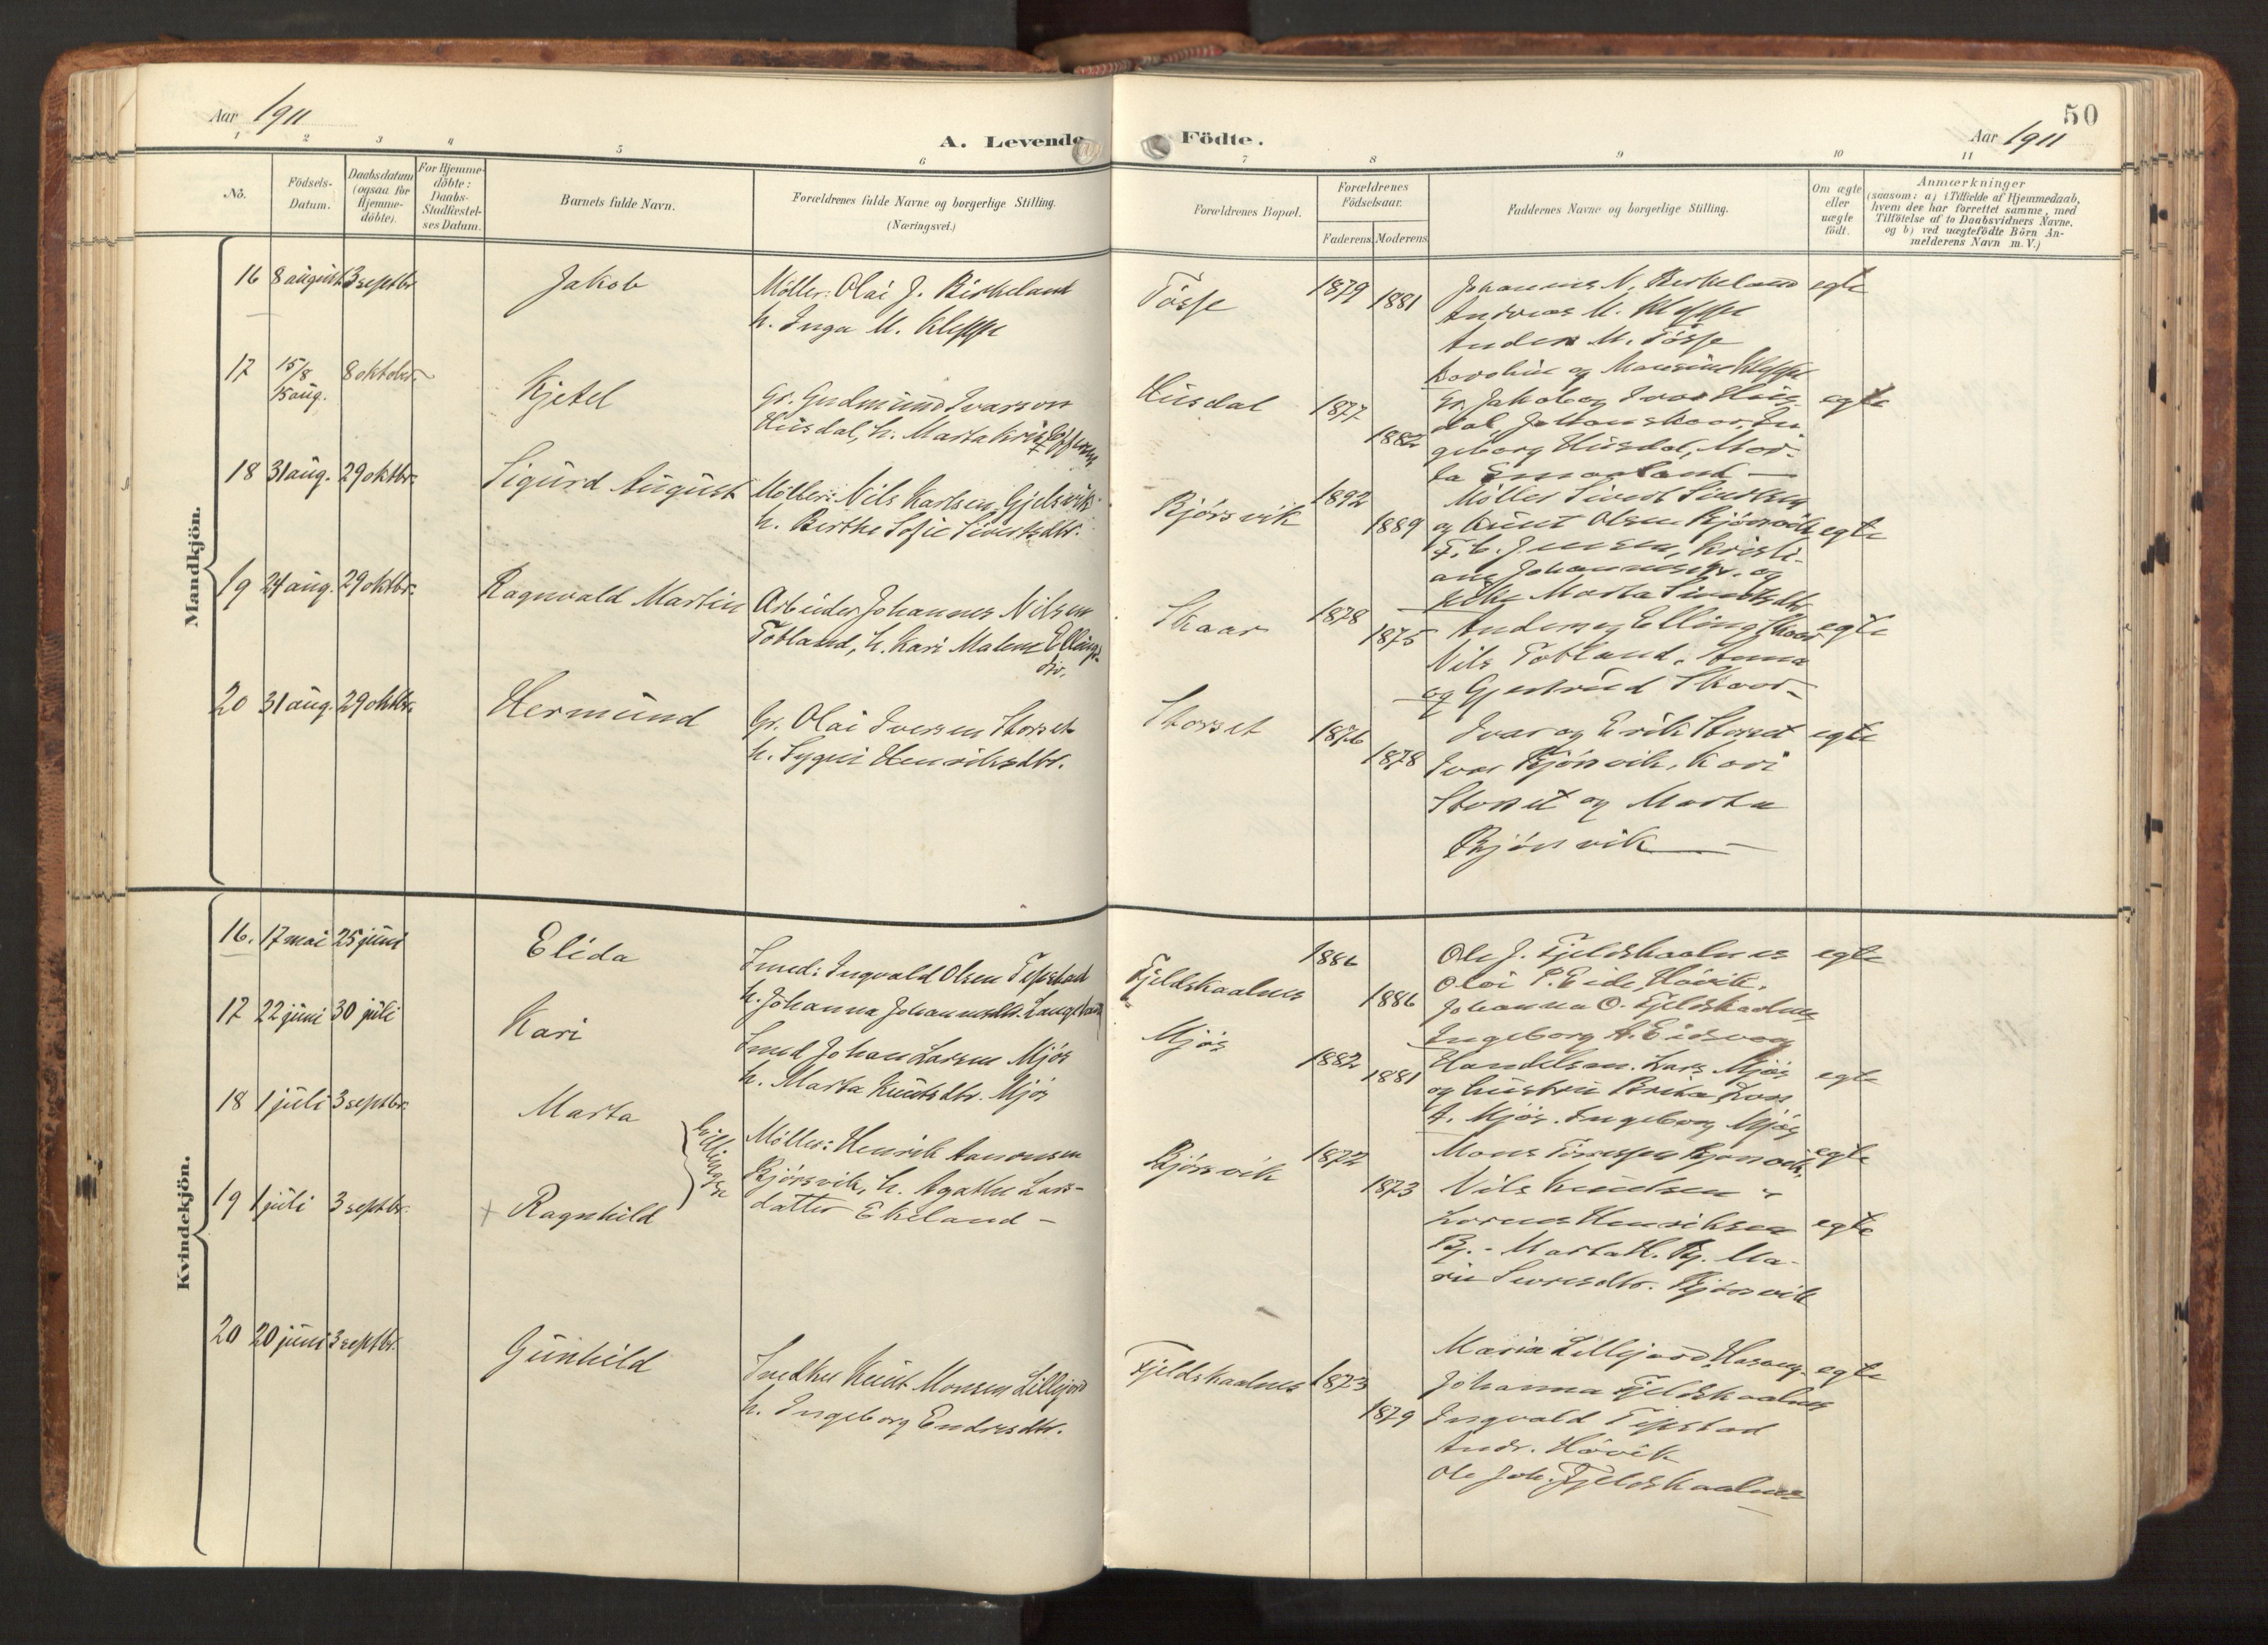 Aar 1911
A. Levende Födte.
50
Aar 1911
1 2 3 4 5 6 7 8 9 10 11
Nö.
Födsels-Datum.
Daabsdatum (ogsaa for Hjemme-döbte).
For Hjemme-döbte: Daabs-Stadfæstel-ses Datum.
Barnets fulde Navn.
Forældrenes fulde Navne og borgerlige Stilling.
(Næringsvei.)
Forældrenes Bopæl.
Forældrenes Födselsaar.
Faderens. Moderens.
Faddernes Navne og borgerlige Stilling.
Om ægte eller uægte födt.
Anmærkninger
(saasom: a) i Tilfælde af Hjemmedaab,
hvem der har forrettet samme, med
Tilföielse af to Daabsvidners Navne,
og b) ved uægtefödte Börn An-
melderens Navn m. V.)
Mandkjön.
16 8 august 3 septbr. Jakob
Möller: Olai J. Birkeland
h. Inga M. Kleppe
Tösse 1879 1881
Johannes N. Birkeland
Andreas M. Kleppe
Anders M. Tösse
og Kleppe
egte
17 15/8 15 aug. 8 oktober Kjetel
Gr. Gudmund Ivarson
Husdal, h. Marta
Husdal 1877 1882
Gr. Jakob og Ivar Hus-
dal, In-
geborg Husdal, Mar-
ta
egte
18 31 aug. 29 oktbr. Sigurd August
Möller: Nils Karlsen Gjelsvik
h. Berthe Sofie Sivertsdtr.
Bjórsvik 1892 1889
Möller Sivert Sivertsen
og Knut Olsen Bjórsvik
Jensen, Kristi-
ane og
Marta Sivertsdtr.
egte
19 24 aug. 29 oktbr. Ragnvald Martin
Arbeider Johannes Nilsen
Totland, h. Kari Malene Ellings-
dtr.
Skaar 1878 1875
Anders og Elling Skaar
Nils Totland, Anna
og Gjertrud Skaar
egte
20 31 aug. 29 oktbr. Hermund
Gr. Olai Iversen Storset
h. Sygni Henriksdtr.
Storset 1876 1878
Ivar og Erik Storset
Ivar Bjórsvik, Kari
Storset og Marta
Bjórsvik
egte
Kvindekjön.
16. 17 mai 25 juni Elida
Smed: Ingvald Olsen Tepstad
h. Johanna Johannesdtr.
Fjeldskaalnes 1886 1886
Ole J. Fjeldskaalnes
Olai P. Eide, Hövik,
Johanna O. Fjeldskaalnes
Ingeborg A. Eidsvog
egte
17 22 juni 30 juli Kari
Smed Johan Larsen Mjós
h. Marta Knutsdtr. Mjós
Mjós 1882 1881
Handelsm. Lars Mjós
og hustru Brita Lars
A. Mjós. Ingeborg Mjós
egte
18 1 juli 3 septbr. Marta
Tvillinger
Möller: Henrik Aanonsen
Bjórsvik, h. Agathe Lars-
datter Ekeland –
Bjórsvik 1872 1873
Mons Bjórsvik,
Nils Knudsen "
egte
19 1 juli 3 septbr. + Ragnhild
Henriksen
Bj. - Marta H. Bj. Ma-
rie Bjórsvik
egte
20 20 juni 3 septbr. Gunhild
Snedker Knut Monsen Lillejord
h. Ingeborg Endresdtr.
Fjeldskaalnes 1873 1879
Maria Lillejord,
Johanna Fjeldskaalnes
Ingvald Tepstad
Andr. Hövik
Ole Joh. Fjeldskaalnes
egte